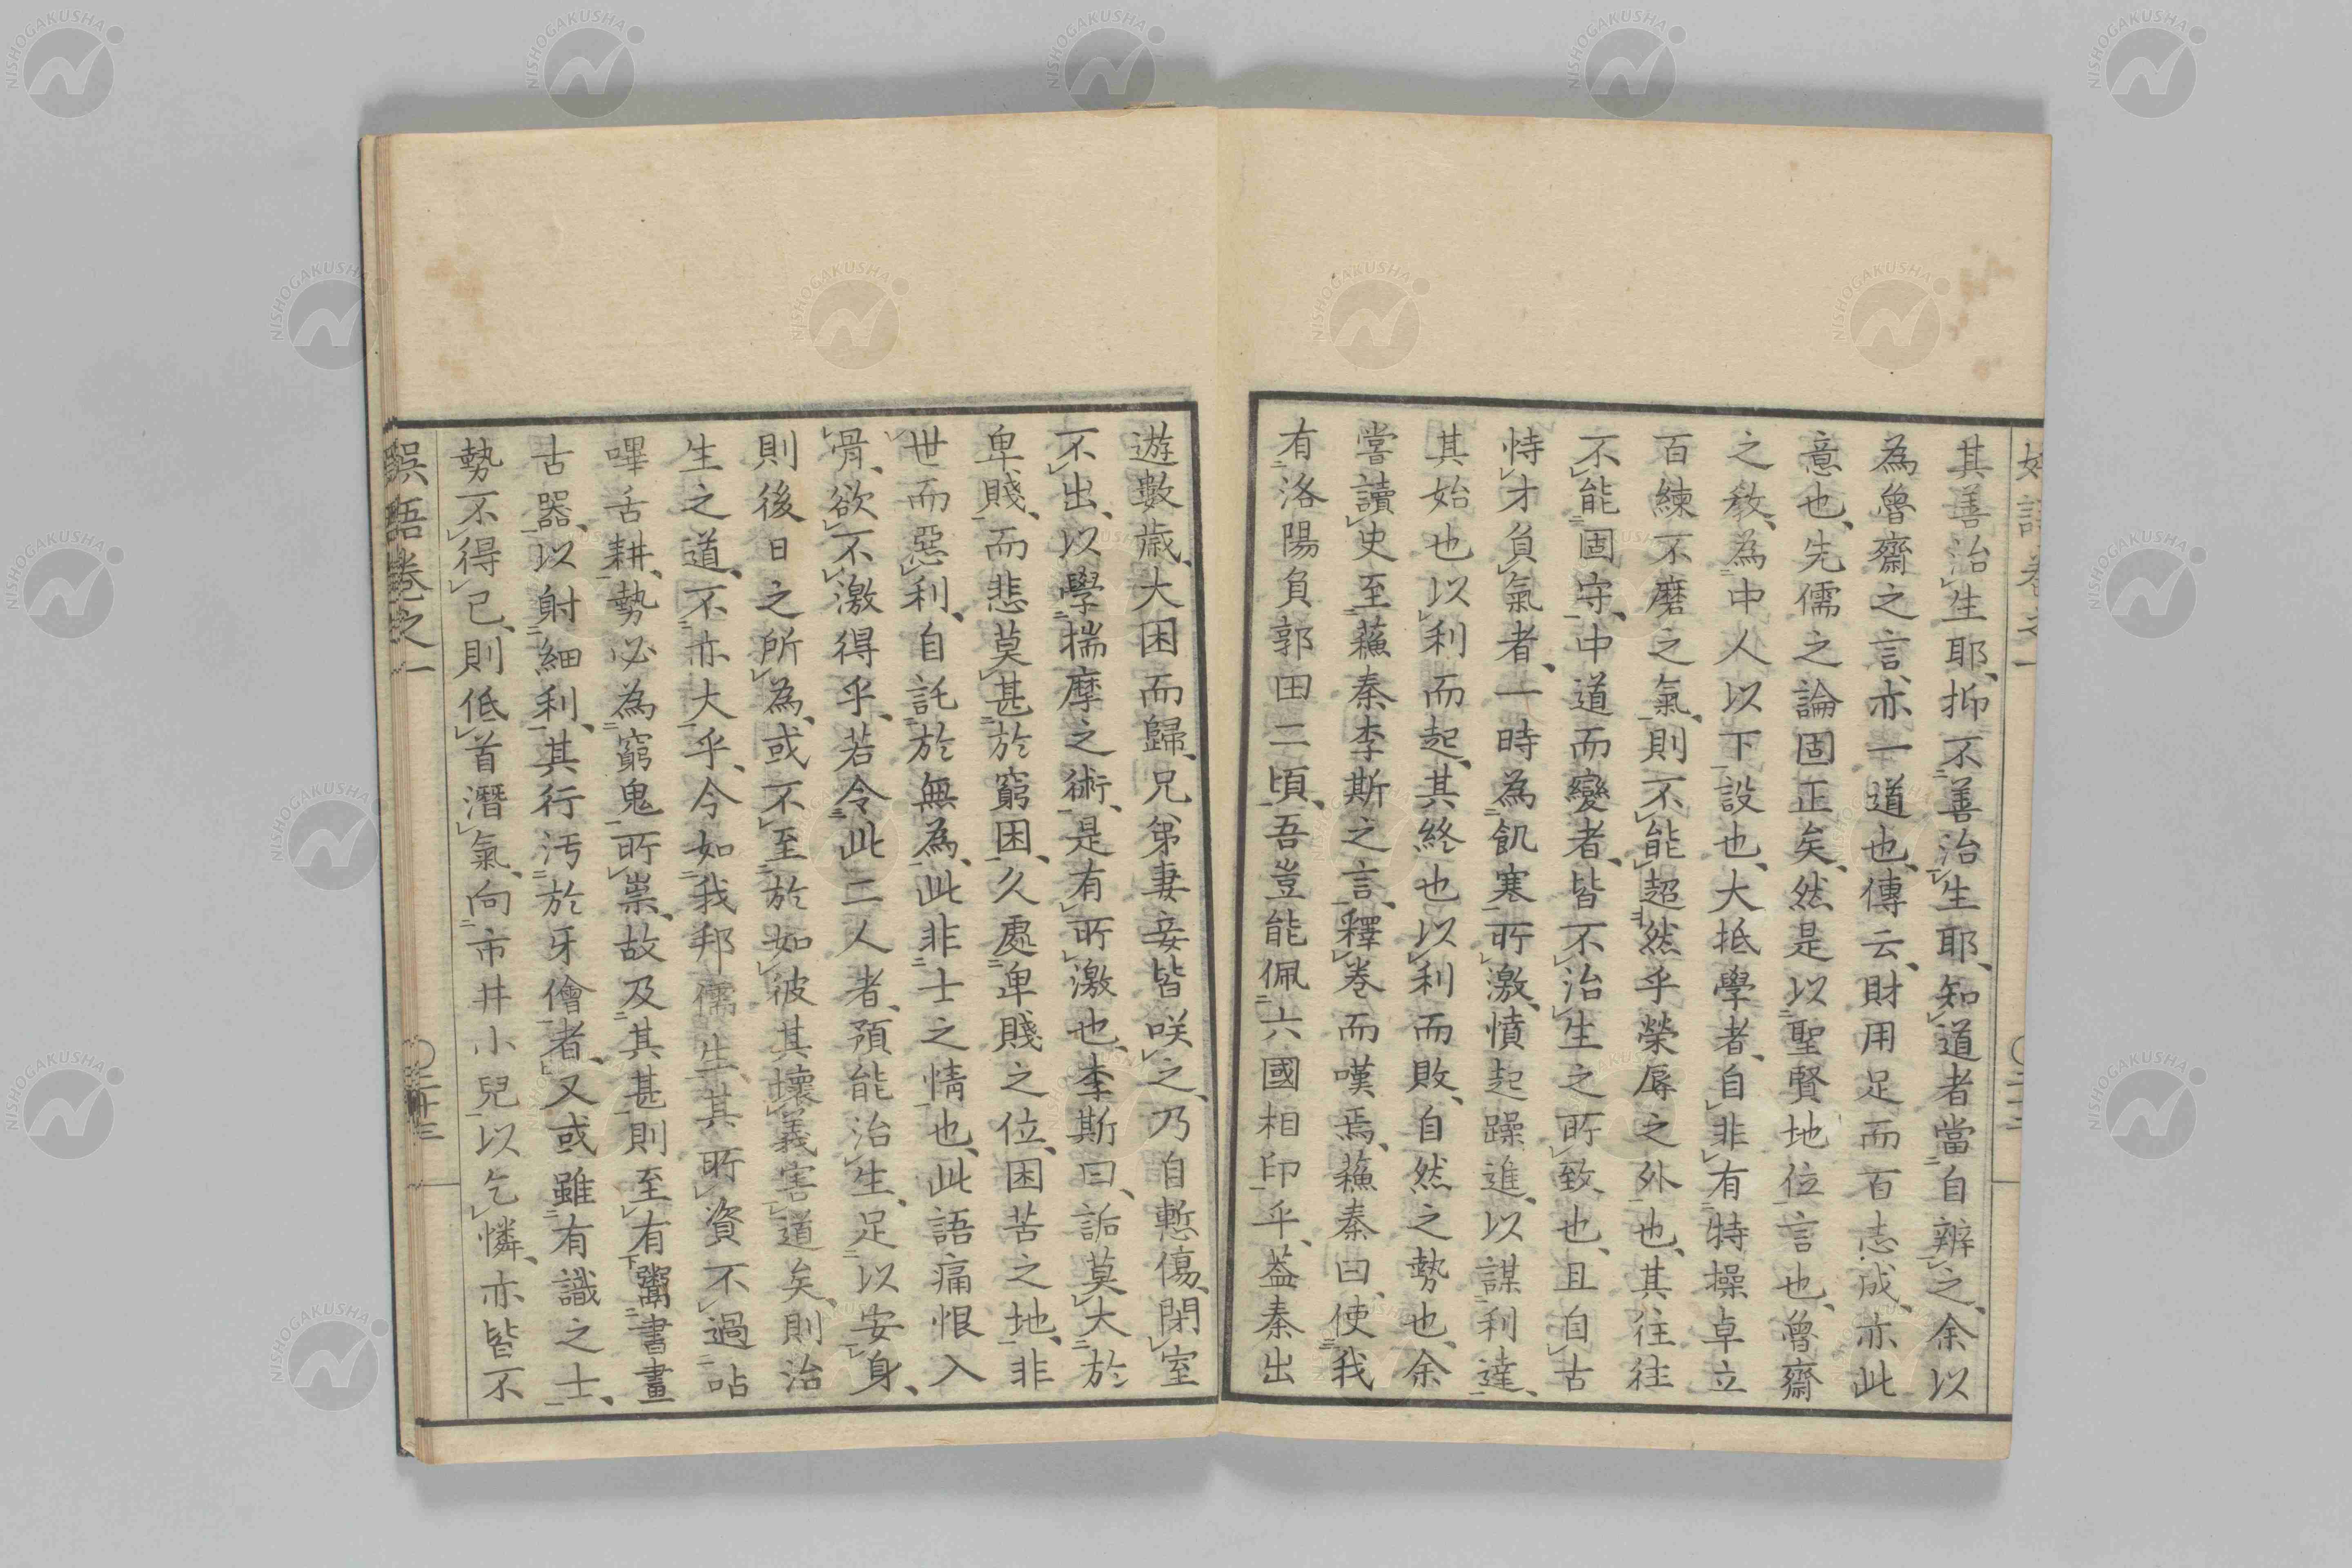 其善治生耶、抑不善治生耶、知道者當自辨之、余以
為魯齋之言、亦一道也、傳云、財用足而百志成、亦此
意也、先儒之論固正矣、然是以聖賢地位言也、魯齋
之敎、為中人以下設也、大抵學者、自非有特操卓立
百練不磨之氣、則不能超然乎榮辱之外也、其往往
不能固守、中道而變者、皆不治生之所致也、且自古
恃才負氣者、一時為飢寒所激、憤起躁進、以謀利達、
其始也以利而起、其終也以利而敗、自然之勢也、余
嘗讀史至蘓秦李斯之言、釋卷而嘆焉、蘓秦曰、使我
有洛陽負郭田二頃、吾豈能佩六國相印乎、葢秦出
遊數歲、大困而歸、兄弟妻妾皆咲之、乃自慙傷、閉室
不出、以學揣摩之術、是有所激也、李斯曰、詬莫大於
卑賤、而悲莫甚於窮困、久處卑賤之位、困苦之地、非
世而惡利、自託於無為、此非士之情也、此語痛恨入
骨、欲不激得乎、若令此二人者、預能治生、足以安身、
則後日之所為、或不至於如彼其壞義害道矣、則治
生之道、不亦大乎、今如我邦儒生、其所資不過呫
嗶舌耕、勢必為窮鬼所祟、故及其甚則至有鬻書畫
古器、以射細利、其行汚於牙儈者、又或雖有識之士、
勢不得已、則低首潛氣、向市井小兒以乞憐、亦皆不
娯語卷之一
二十三
NISHOGAKUSHA